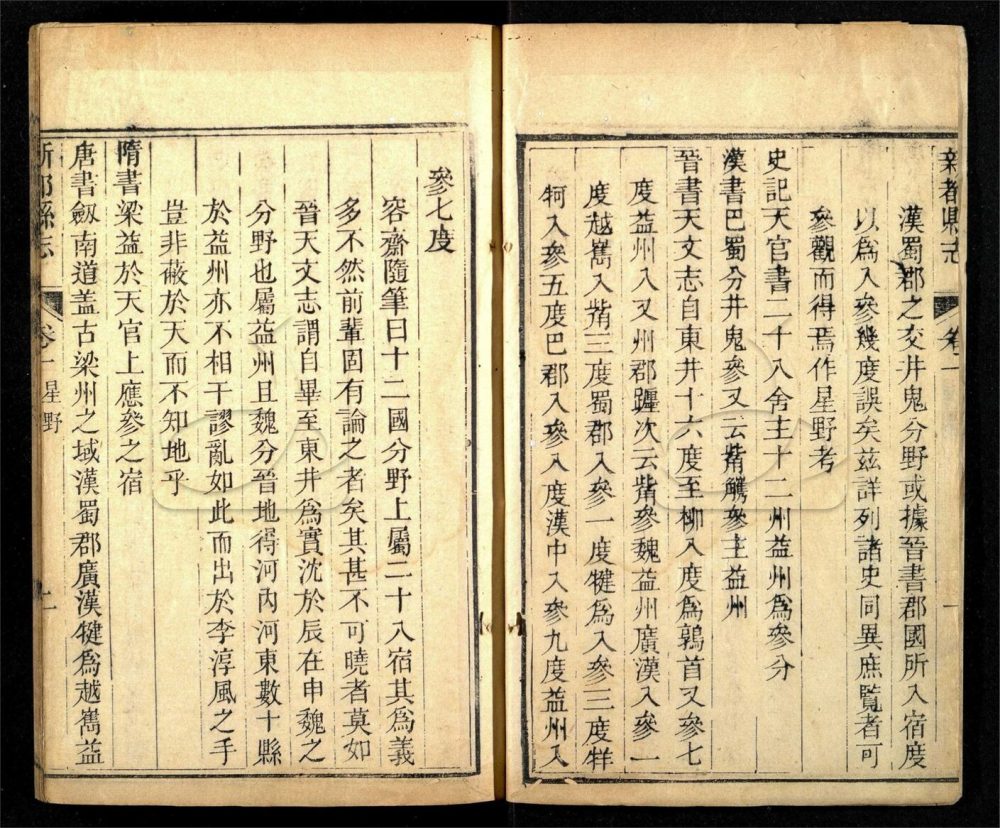 新都縣志 卷一
漢蜀郡之交井鬼分野或據晉書郡國所入宿度
以爲入參幾度誤矣茲詳列諸史同異庶覽者可
參觀而得焉作星野考
史記天官書二十八舍主十二州益州爲參分
漢書巴蜀分井鬼參又云觜觿參主益州
晉書天文志自東井十六度至柳八度爲鶉首又參七
度益州入又州郡躔次云觜參魏益州廣漢入參一
度越嶲入觜三度蜀郡入參一度犍爲入參三度牂
牁入參五度巴郡入參八度漢中入參九度益州入
參七度
容齋隨筆曰十二國分野上屬二十八宿其爲義
多不然前輩固有論之者矣其甚不可曉者莫如
晉天文志謂自畢至東井爲實沈於辰在申魏之
分野也屬益州且魏分晉地得河內河東數十縣
於益州亦不相干謬亂如此而出於李淳風之手
豈非蔽於天而不知地乎
隋書梁益於天官上應參之宿
唐書劔南道盖古梁州之域漢蜀郡廣漢犍爲越嶲益
新都縣志 卷一 星野